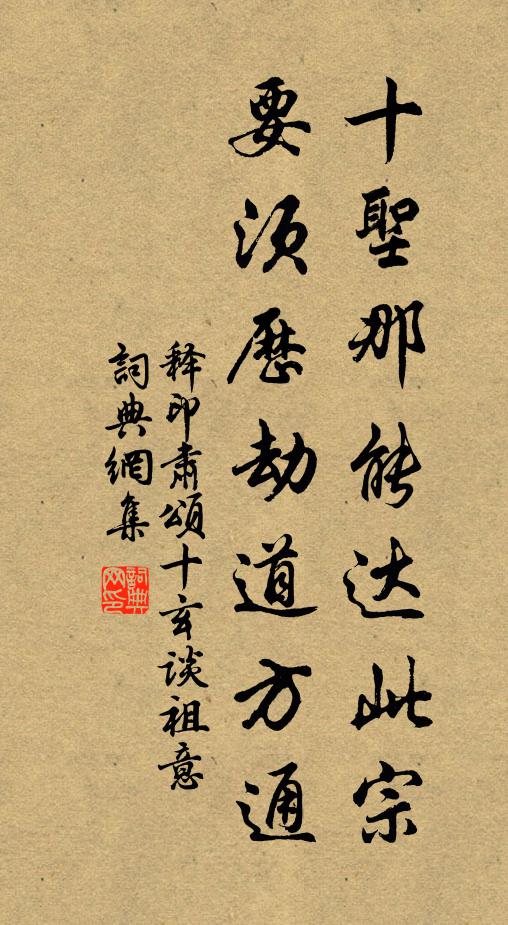 十聖那能达此宗
要须歷劫道方通
释印肃頌十玄谈祖意
詞典網集
詞典网印